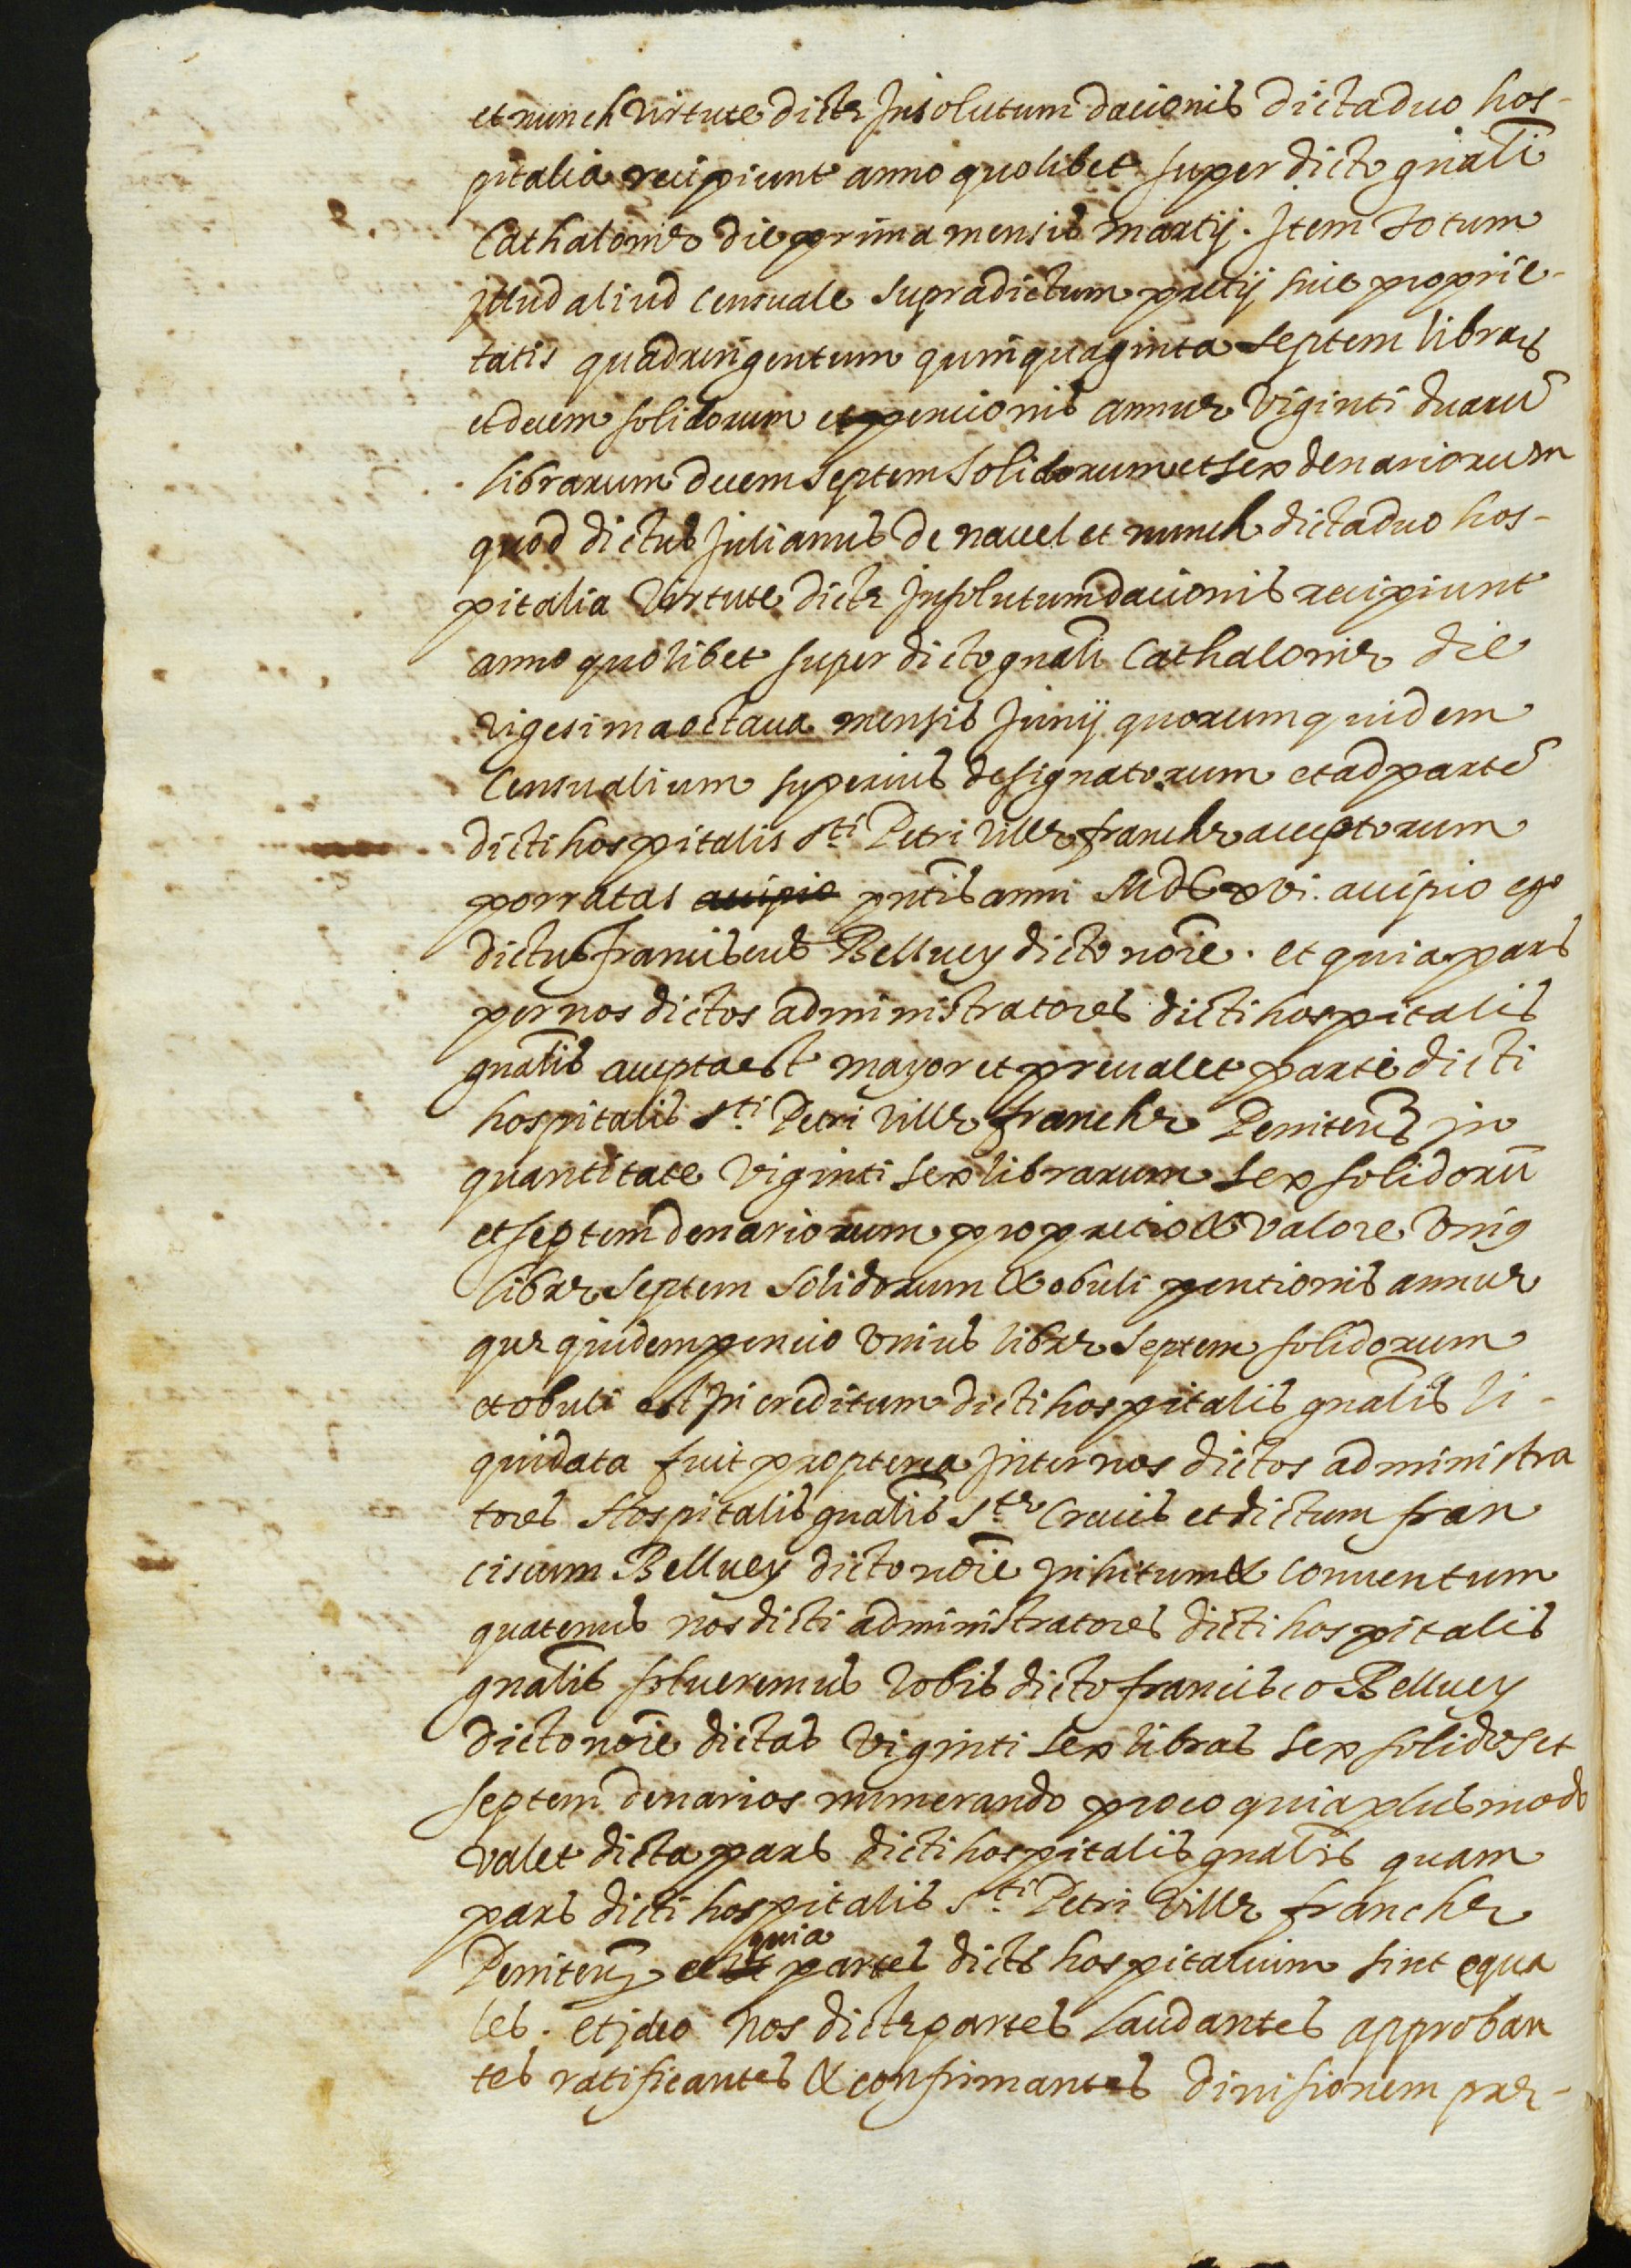 et nunch virtute dictę Insolutum dacionis dicta duo hos-
pitalia recipiunt anno quolibet super dicto gnāli
Cathalonię die prima mensis martij. Item totum
illud aliud Censuale supradictum pretij sive proprie-
tatis quadringentum quinquaginta septem libraȝ
et decem solidorum et pencionis annuę viginti duarū
librarum decem septem solidorum et sex denariorum
quod dictus Julianus de navel et nunch dicta duo hos-
pitalia virtute dictę Insolutumdacionis recipiunt
anno quolibet super dicto gnāli Cathalonię die
vigesima octava mensis Junij quorum quidem
Censualium superius designatorum et ad partē
dicti hospitalis sti Petri villę franchę acceptorum
porratas accipio pntis anni MdCxvi. accipio ego
dictus franciscus Bellvey dicto noīe. et quia pars
per nos dictos administratores dicti hospitalis
gnālis accepta est mayor et prevalet parte dicti
hospitalis sti Petri villę franchę Peniteñ in
quantitate viginti sex librarum sex solidorū
et septem denariorum pro pretio & valore uniȝ
librę septem solidorum & obuli pentionis annuę
quę quidem pencio unius librę septem solidorum
et obuli est In creditum dicti hospitalis gnālis li-
quidata fuit propterea Inter nos dictos administra
tores Hospitalis gnālis stę Crucis et dictum fran
ciscum Bellvey dicto noīe Inhitum & conventum
quatenus nos dicti administratores dicti hospitalis
gnālis solveremus vobis dicto francisco Bellvey
dicto noīe dictas viginti sex libras sex solidos et
septem denarios numerando pro eo quia plus modo
valet dicta pars dicti hospitalis gnālis quam
pars dicti hospitalis sti Petri villę franchę
Peniteñ et quia partes dictȝ hospitalium sint equa
les. et ideo nos dictę partes laudantes approban
tes ratificantes & confirmantes divisionem prę-